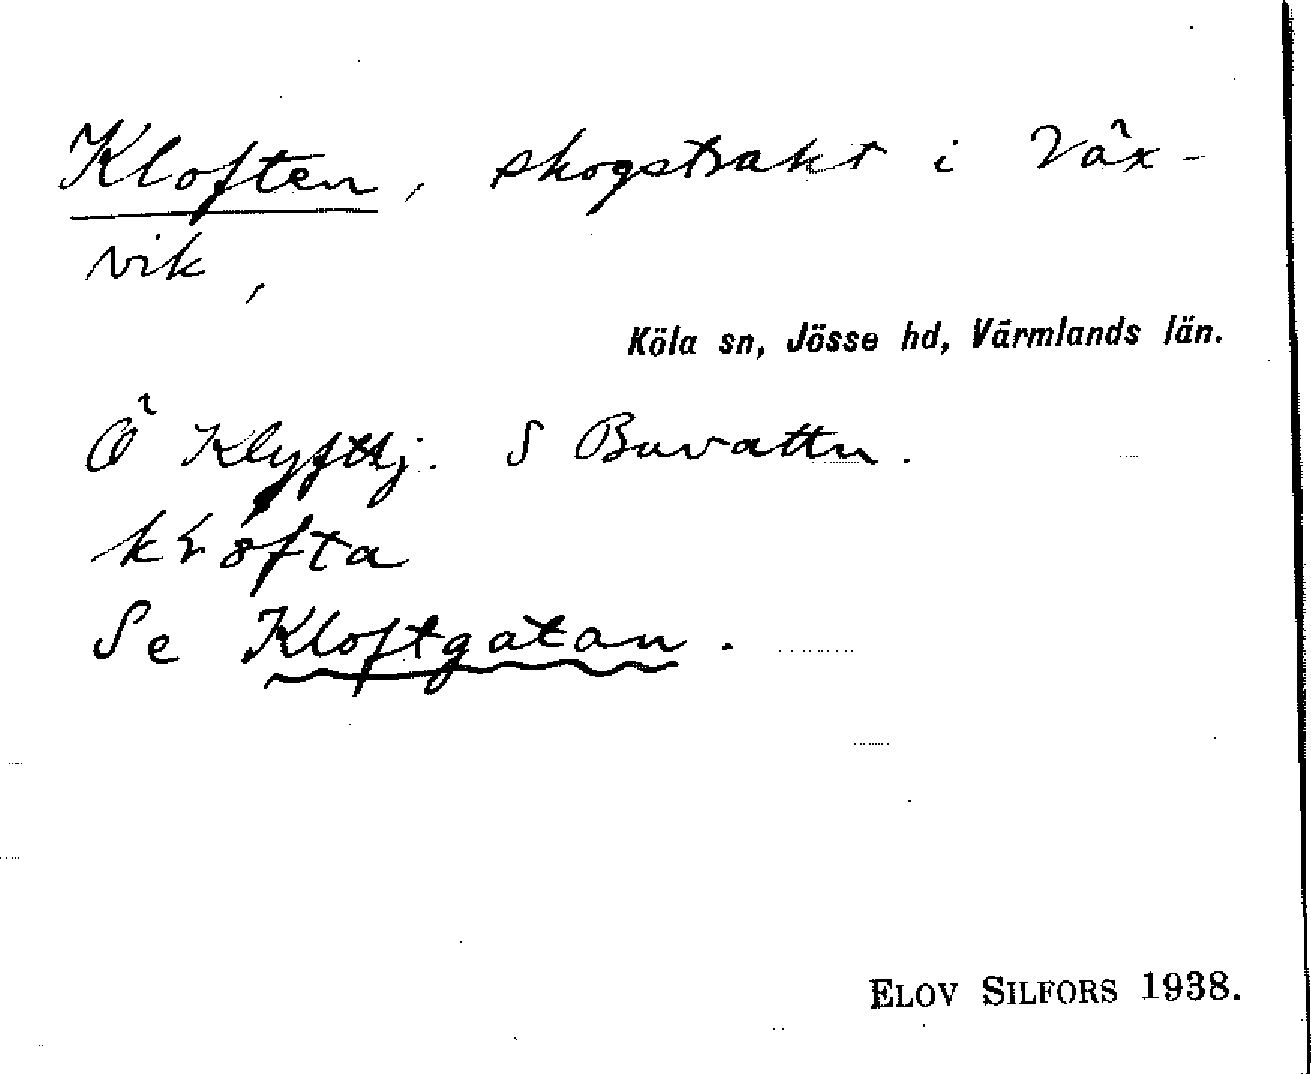 Kloften, skogstrakt i Väx-
vik,
Köla sn, Jösse hd, Värmlands län.
Ö Klyfttj. S Buvattn.
Se Kloftgatan.
ELOV SILFORS 1938.